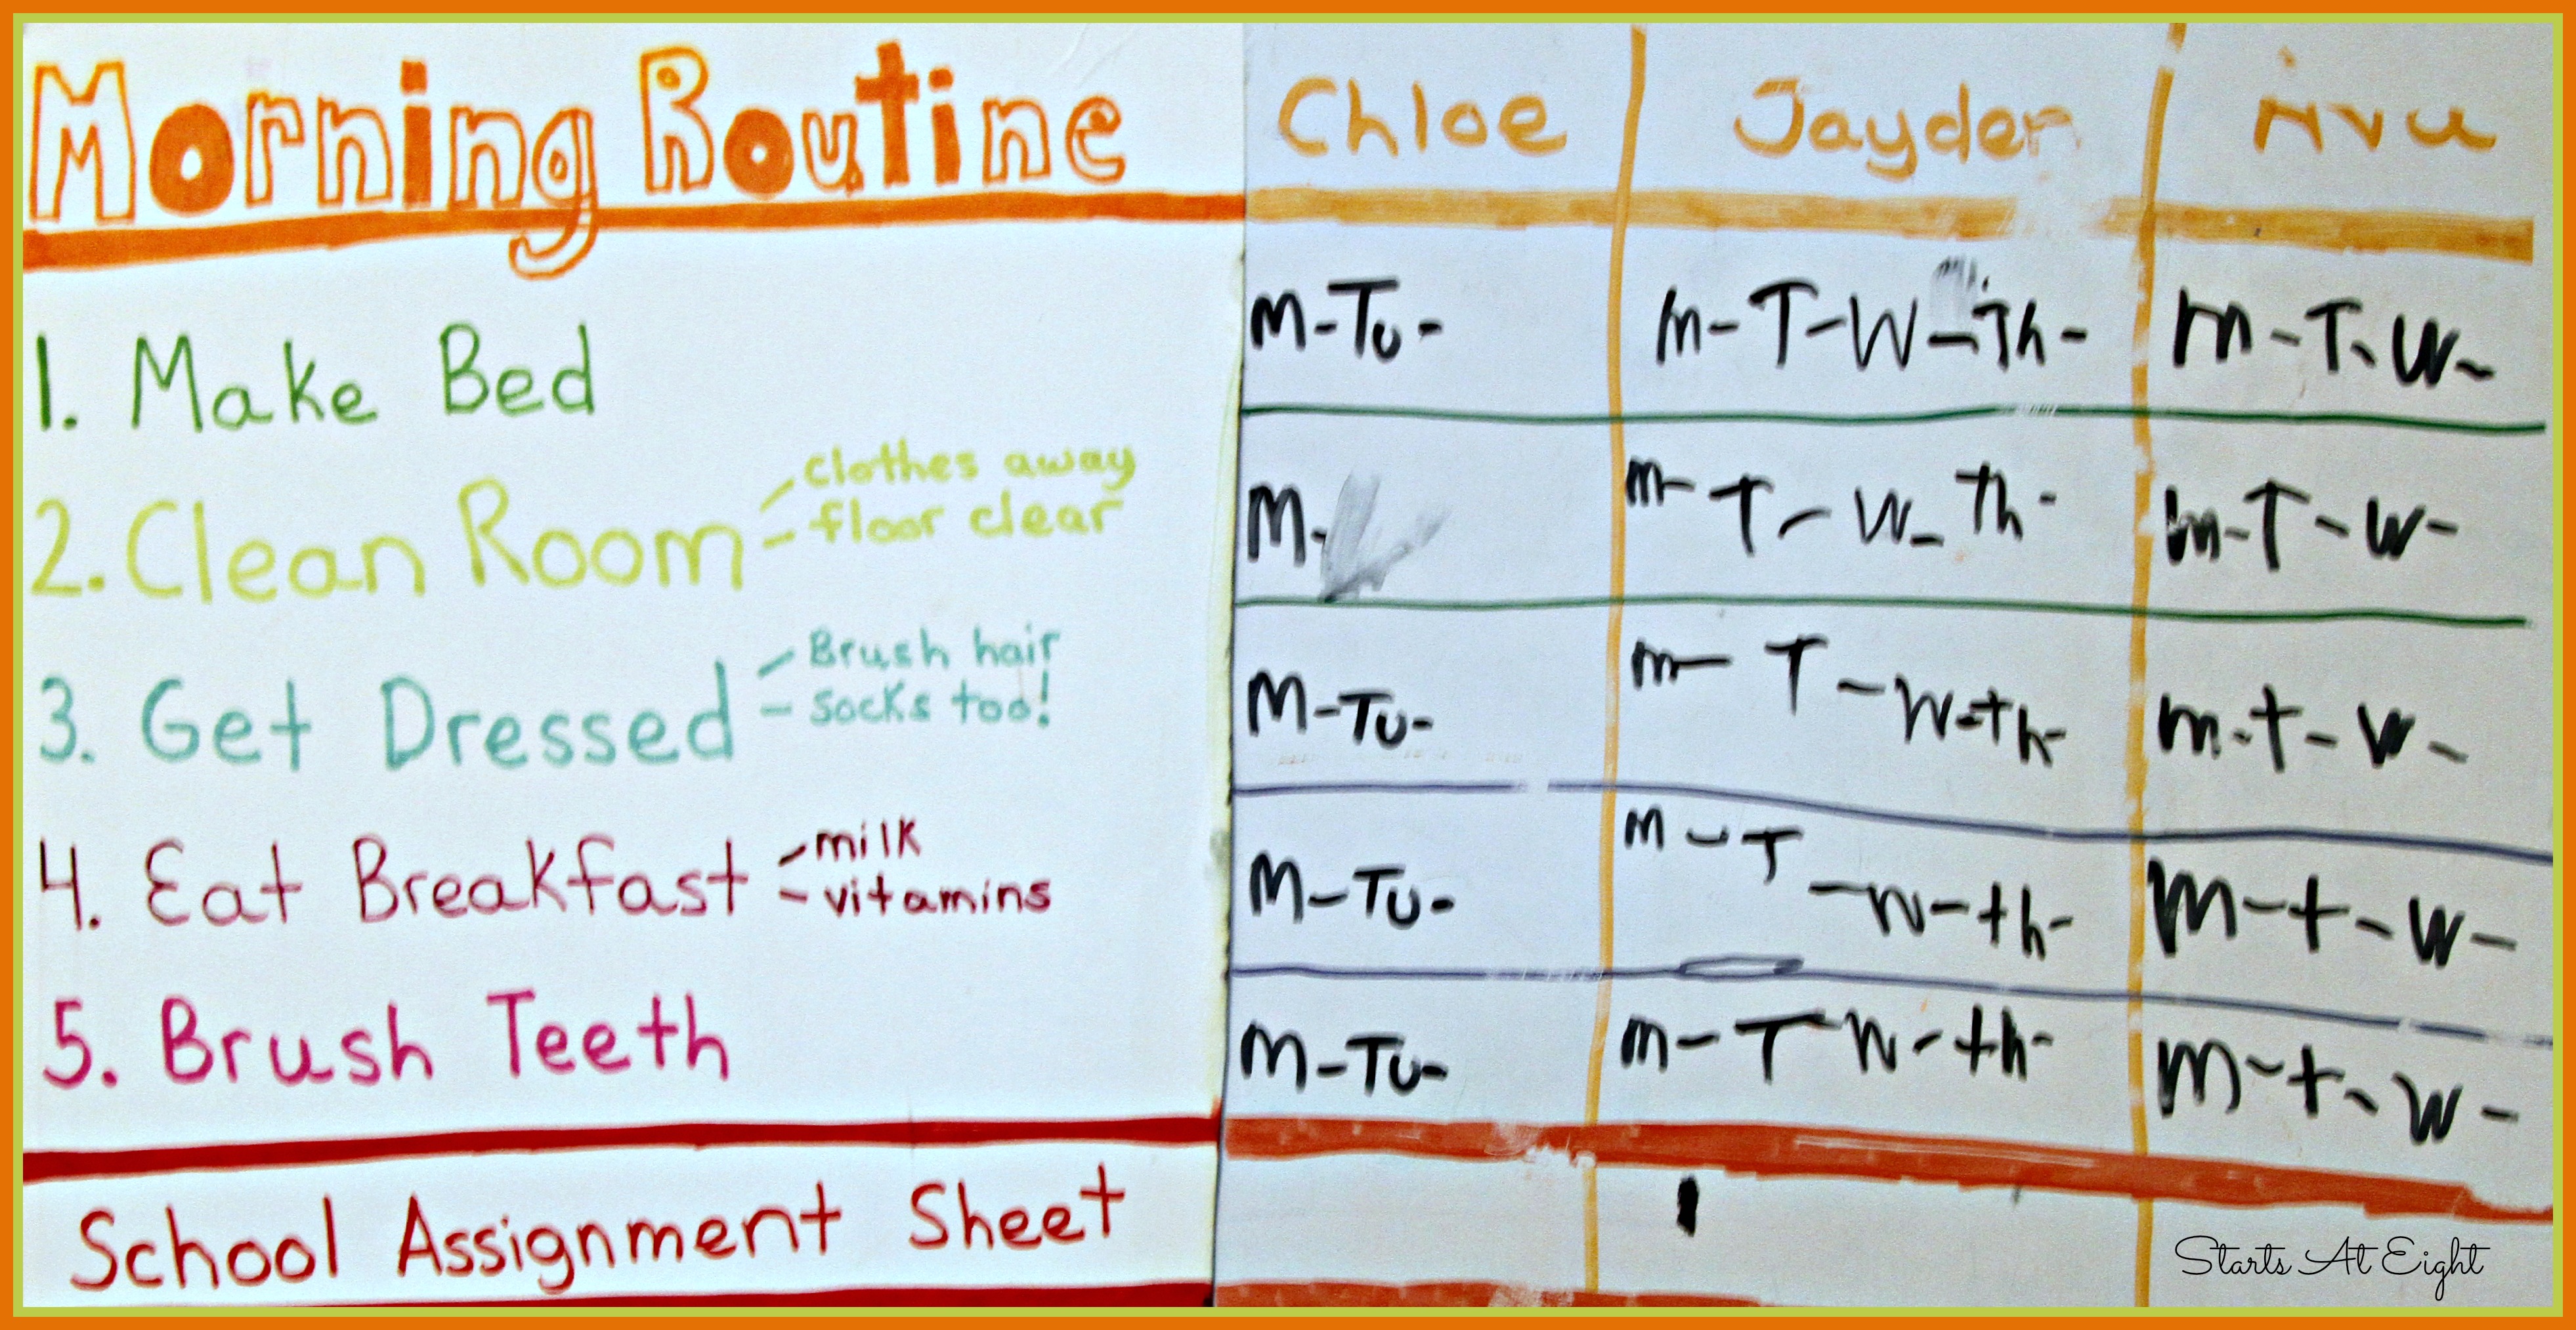 Morning Routine
Chloe Jayden
1. Make Bed
M-Tu- M-T-W-Th- M-T-W-
2. Clean Room - clothes away
- floor clear
M- M-T-W-Th- M-T-W-
3. Get Dressed - Brush hair
- socks too!
M-Tu- M-T-W-th- M-t-W-
4. Eat Breakfast - milk
- vitamins
M-Tu- M-T-W-th- M-t-W-
5. Brush Teeth
M-Tu- M-T W-th- M-t-W-
School Assignment Sheet
Starts At Eight